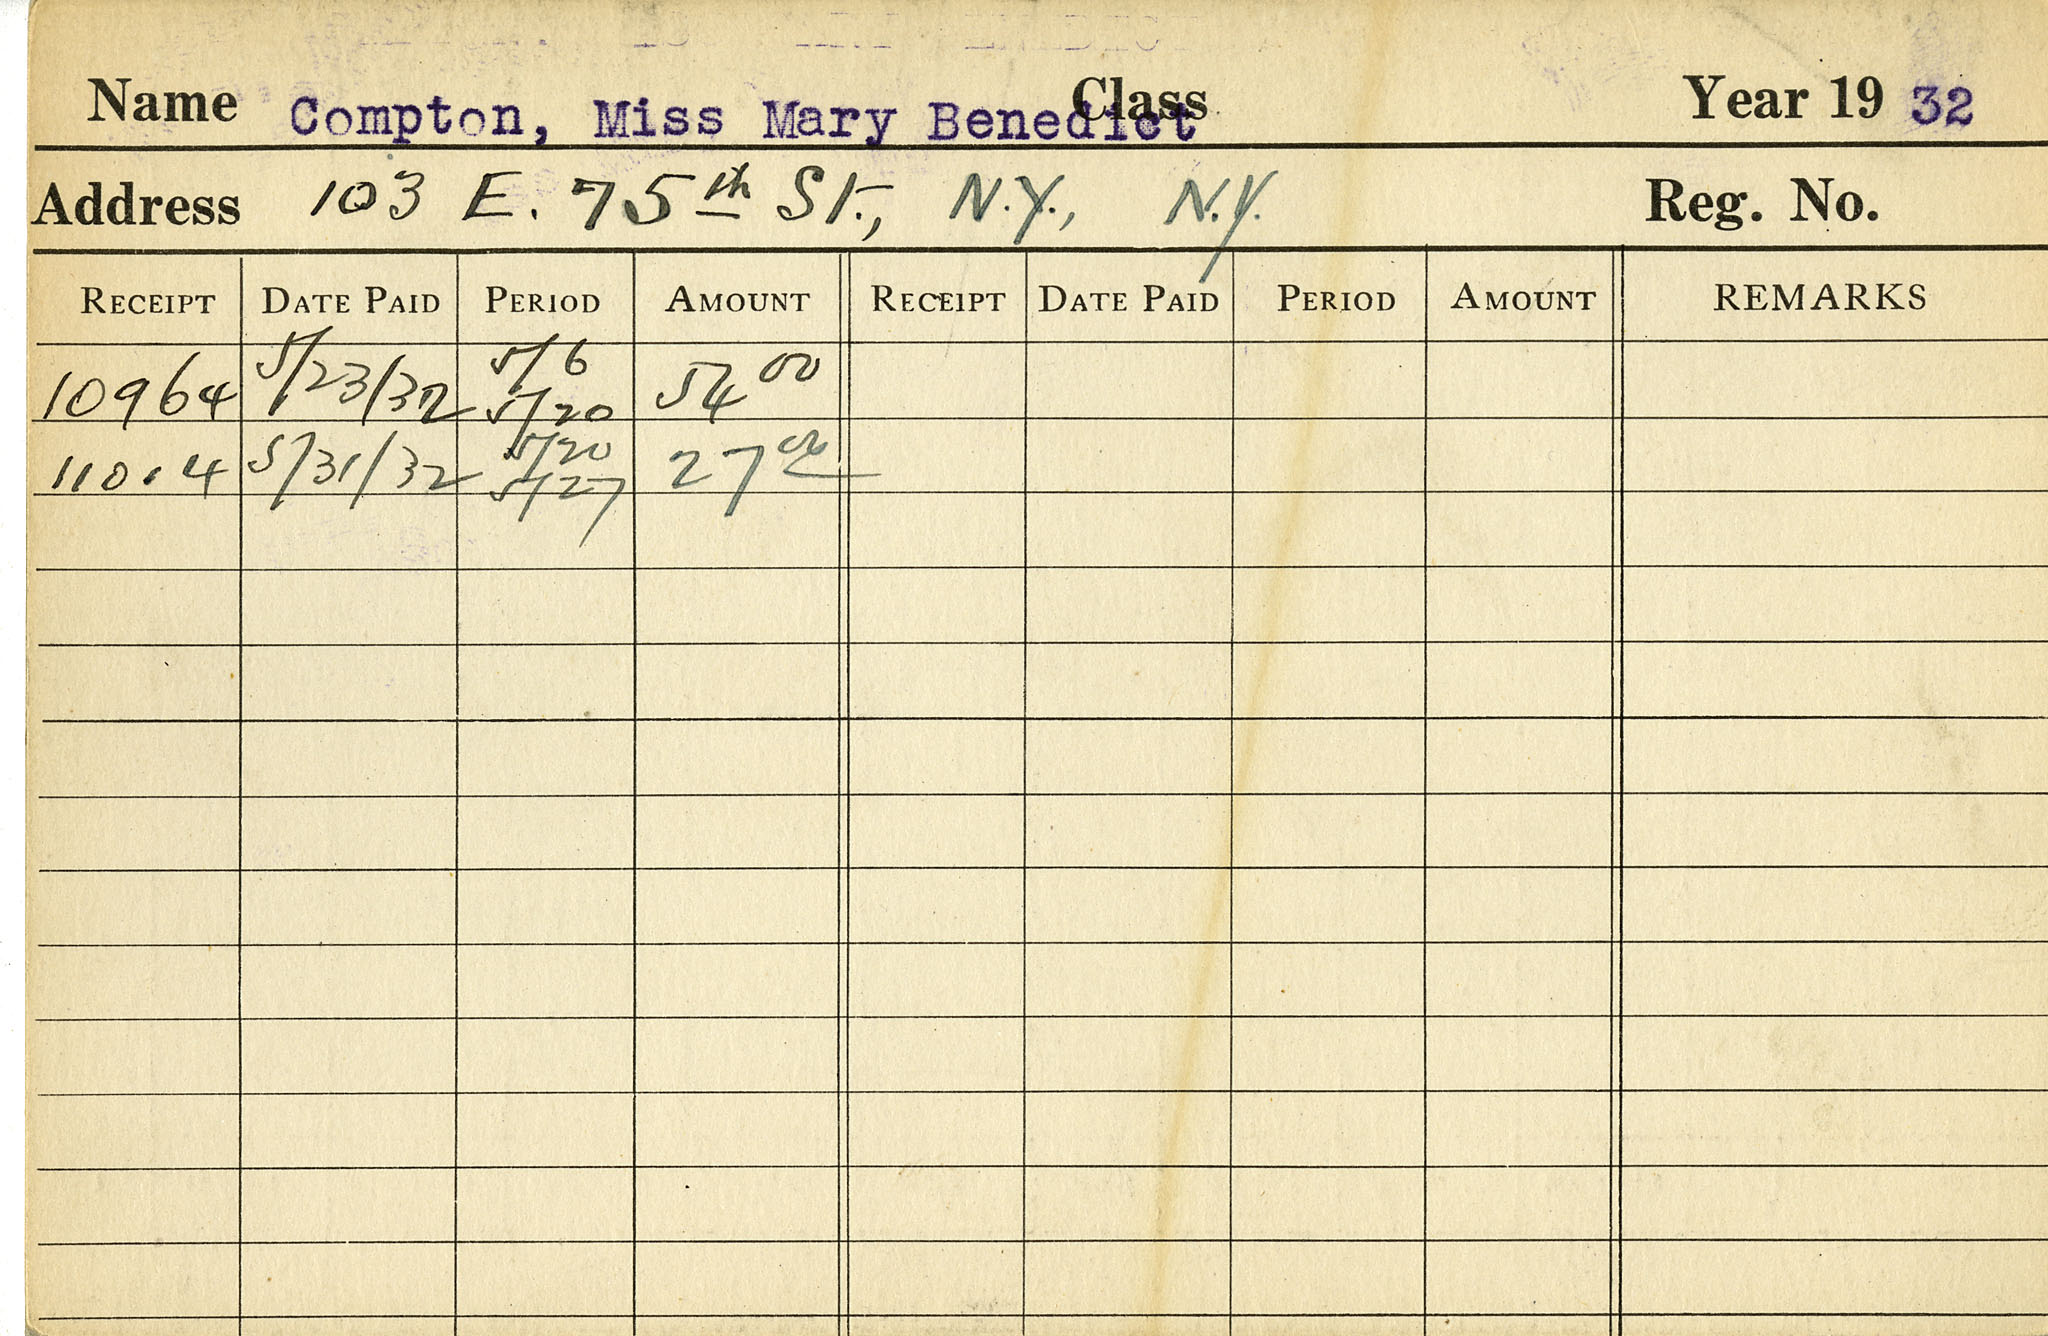 Name Compton, Miss Mary Benedict Class Year 19 32
Address 103 E. 75th St., N.Y., N.Y. Reg. No.
RECEIPT DATE PAID PERIOD AMOUNT RECEIPT DATE PAID PERIOD AMOUNT REMARKS
10964 5/23/32 5/6 5/20 54 00
11014 5/31/32 5/20 5/27 27 00